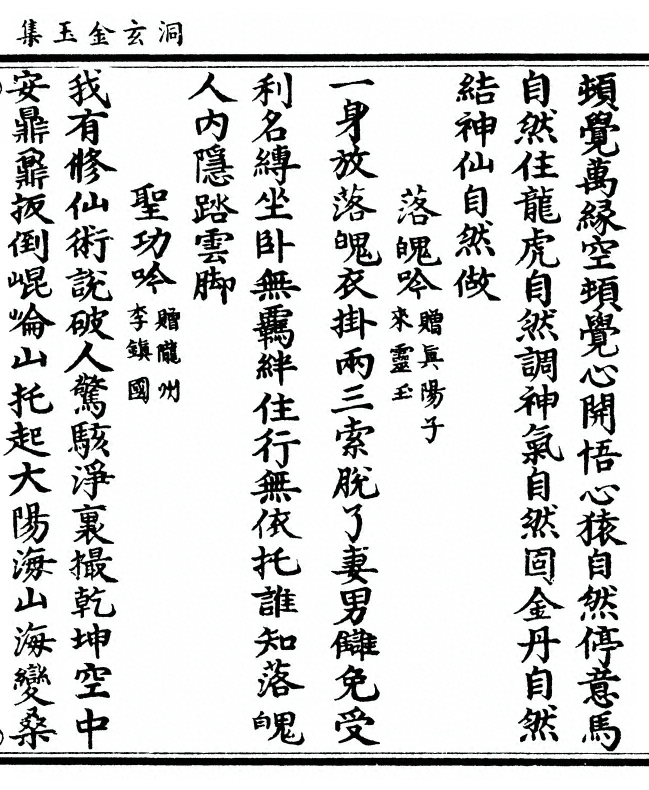 洞玄金玉集
頓覺萬緣空頓覺心開悟心猿自然停意馬
自然住龍虎自然調神氣自然固金丹自然
結神仙自然做
落魄吟
贈眞陽子
來靈玉
一身放落魄衣掛兩三索脫了妻男讎免受
利名縛坐卧無覊絆住行無依托誰知落魄
人内隱踏雲脚
聖功吟
贈隴州
李鎮國
我有修仙術說破人驚駭淨裏撮乾坤空中
安鼎鼐扳倒崐崘山托起大陽海山海變桑